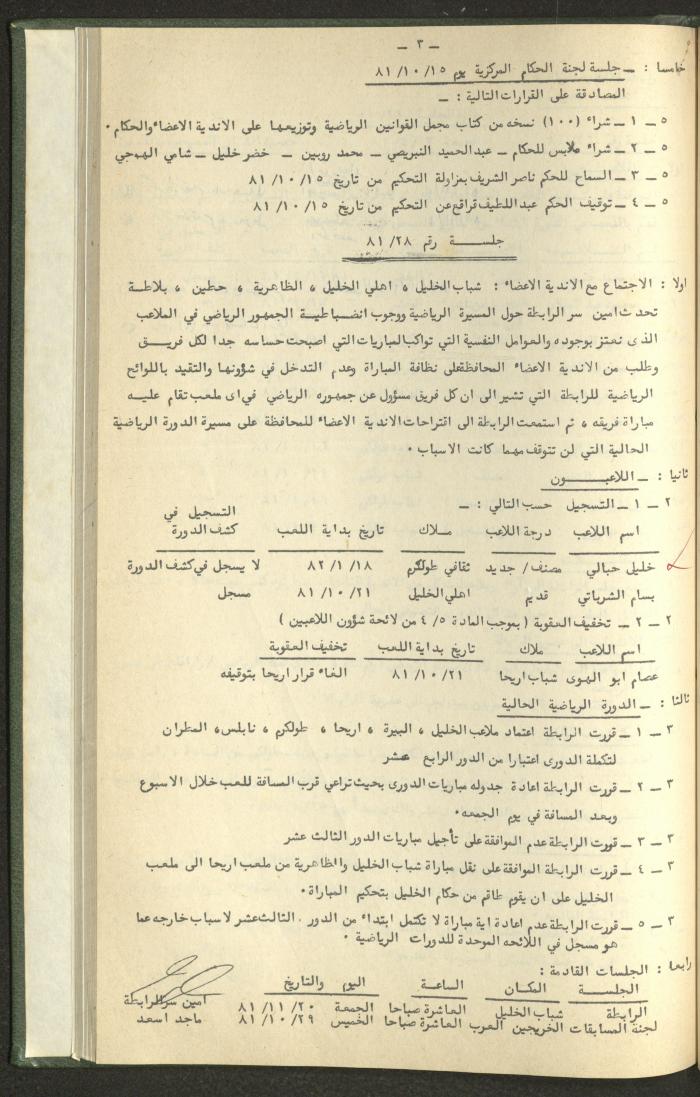 — ٣ —
خامسا : — جلسة لجنة الحكام المركزية يوم ١٥/ ١٠/ ٨١
المصادقة على القرارات التالية : —
٥ — ١ — شراء (١٠٠) نسخه من كتاب مجمل القوانين الرياضية وتوزيعها على الاندية الاعضاء والحكام ٠
٥ — ٢ — شراء ملابس للحكام — عبدالحميد النبريصي — محمد روبين — خضر خليل — شامي الهمجي
٥ — ٣ — السماح للحكم ناصر الشريف بمزاولة التحكيم من تاريخ ١٥/ ١٠/ ٨١
٥ — ٤ — توقيف الحكم عبداللطيف قراقع عن التحكيم من تاريخ ١٥/ ١٠/ ٨١
جلســـة رقم ٢٨/ ٨١
اولا : الاجتماع مع الاندية الاعضاء : شباب الخليل ، اهلي الخليل ، الظاهرية ، حطين ، بلاطـة
تحدث امين سر الرابطة حول المسيرة الرياضية ووجوب انضباطيـة الجمهور الرياضي في الملاعب
الذى نعتز بوجوده والعوامل النفسية التي تواكب المباريات التي اصبحت حساسه جدا لكل فريــق
وطلب من الاندية الاعضاء المحافظةعلى نظافة المباراة وعدم التدخل في شؤونها والتقيد باللوائح
الرياضية للرابطة التي تشير الى ان كل فريق مسؤول عن جمهوره الرياضي في اى ملعب تقام عليـه
مباراة فريقه ، ثم استمعت الرابطة الى اقتراحات الاندية الاعضاء للمحافظة على مسيرة الدورة الرياضية
الحالية التي لن تتوقف مهما كانت الاسباب ٠
ثانيا : — اللاعبـــــون
٢ — ١ — التسجيل حسب التالي : —
اسم اللاعب درجة اللاعب مــلاك تاريخ بداية اللعب التسجيل في كشف الدورة
خليل حبالي مصنف/ جديد ثقافي طولكرم ١٨/ ١/ ٨٢ لا يسجل في كشف الدورة
بسام الشرباتي قديم اهلي الخليل ٢١/ ١٠/ ٨١ مسجل
٢ — ٢ — تخفيف العقوبة ( بموجب المادة ٥/ ٤ من لائحة شؤون اللاعبين )
اسم اللاعب ملاك تاريخ بداية اللعب تخفيف العقوبة
عصام ابو الهوى شباب اريحا ٢١/ ١٠/ ٨١ الغاء قرار اريحا بتوقيفه
ثالثا : — الدورة الرياضية الحالية
٣ — ١ — قررت الرابطة اعتماد ملاعب الخليل ، البيرة ، اريحا ، طولكرم ، نابلس، المطران
لتكملة الدورى اعتبارا من الدور الرابع عشر
٣ — ٢ — قررت الرابطة اعادة جدوله مباريات الدورى بحيث تراعي قرب المسافة للعب خلال الاسبوع
وبعد المسافة في يوم الجمعه٠
٣ — ٣ — قررت الرابطة عدم الموافقة على تأجيل مباريات الدور الثالث عشر
٣ — ٤ — قررت الرابطة الموافقة على نقل مباراة شباب الخليل والظاهرية من ملعب اريحا الى ملعب
الخليل على ان يقوم طاقم من حكام الخليل بتحكيم المباراة ٠
٣ — ٥ — قررت الرابطة عدم اعادة اية مباراة لا تكتمل ابتداء من الدور الثالث عشر لاسباب خارجه عما
هو مسجل في اللائحه الموحدة للدورات الرياضية ٠
رابعا : الجلسات القادمة :
الجلســـة المكـان الساعـة اليوم والتاريخ
الرابطة شباب الخليل العاشرة صباحا الجمعة ٢٠/ ١١/ ٨١ امين سرالرابطة
لجنة المسابقات الخريجين العرب العاشرة صباحا الخميس ٢٩/ ١٠/ ٨١ ماجد اسعد